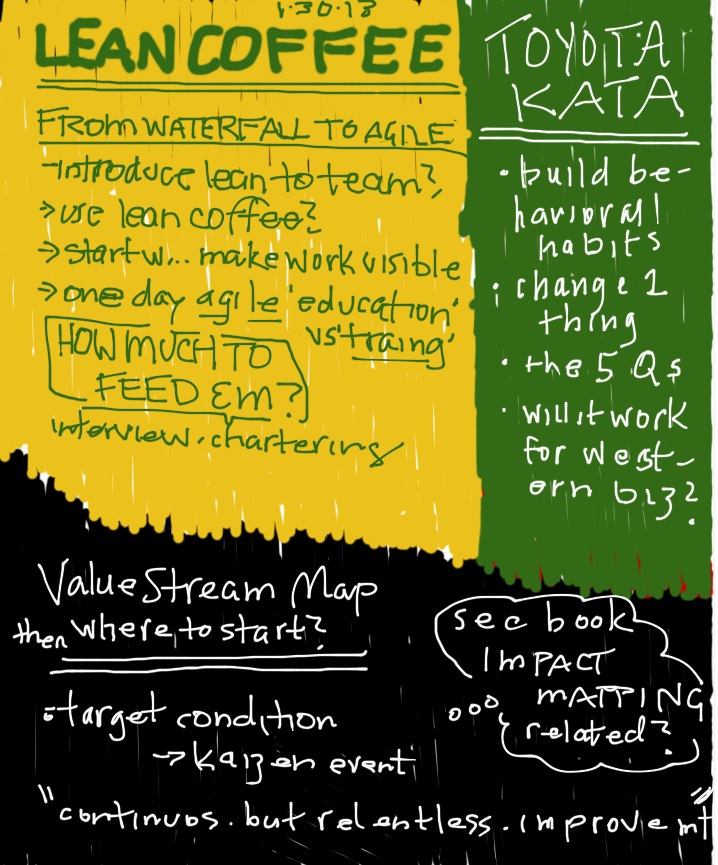 1.30.13
LEAN COFFEE
FROM WATERFALL TO AGILE
-introduce lean to team?
→use lean coffee?
→start w... make work visible
→one day agile 'education'
vs 'traing'
HOW MUCH TO
FEED EM?
interview.chartering
TOYOTA
KATA
• build be-
havioral
habits
• change 1
thing
• the 5 Qs
• will it work
for west-
ern biz?
Value Stream Map
then where to start?
-target condition
→ Kaizen event
see book
IMPACT
MAPPING
related?
"continuos. but relentless. improvemt"